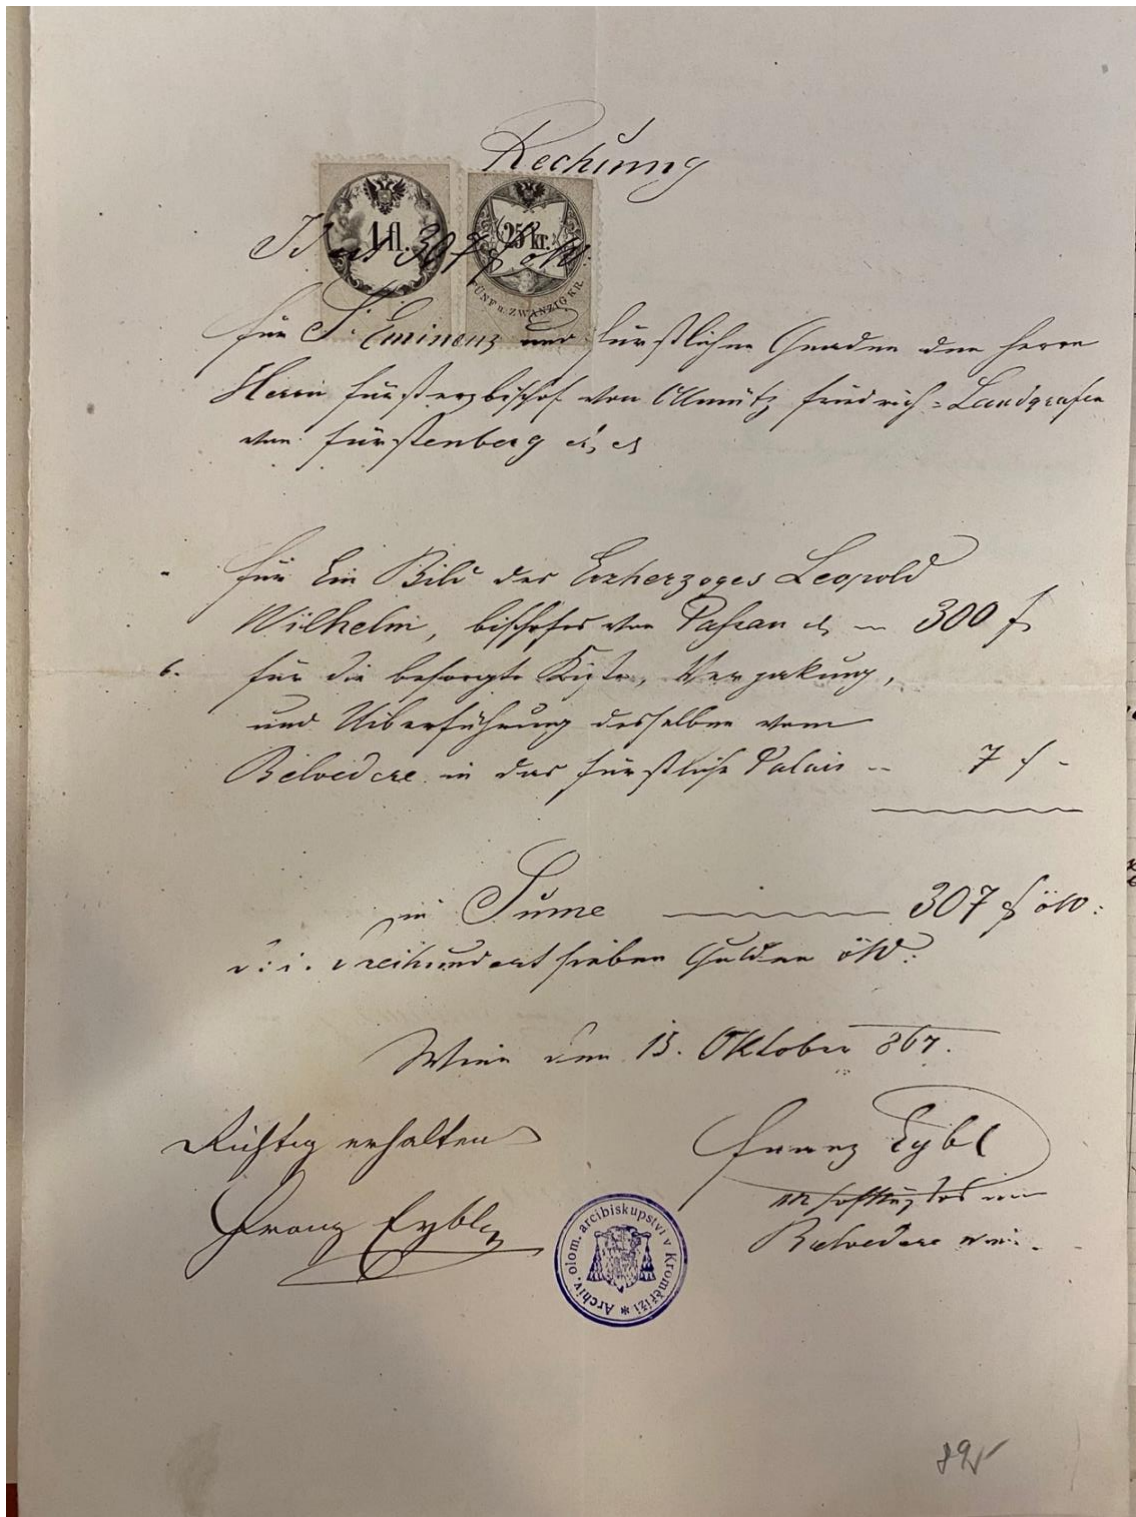 Rechnung
1 fl.
25 kr.
FÜNF u. ZWANZIG KR.
307 f öW:
für S: Eminenz und fürstlichen Gnaden den Herrn
Herrn Fürsterzbischof von Ollmütz Friedrich=Landgrafen
von Fürstenberg
für Ein Bild des Erzherzoges Leopold
Wilhelm, Bischofes von Passau 300 f
b. für die besorgte Kiste, Verpakung,
und Uiberführung desselben vom
Belvedere in das fürstliche Palais -- 7 f -
in Sume 307 f öW:
d: i. dreihundert sieben Gulden öW:
Wien den 15. Oktober 867.
Richtig erhalten
Franz Eybl
Franz Eybl
Custos im
Belvedere
Archiv. olom. arcibiskupství v Kroměříži *